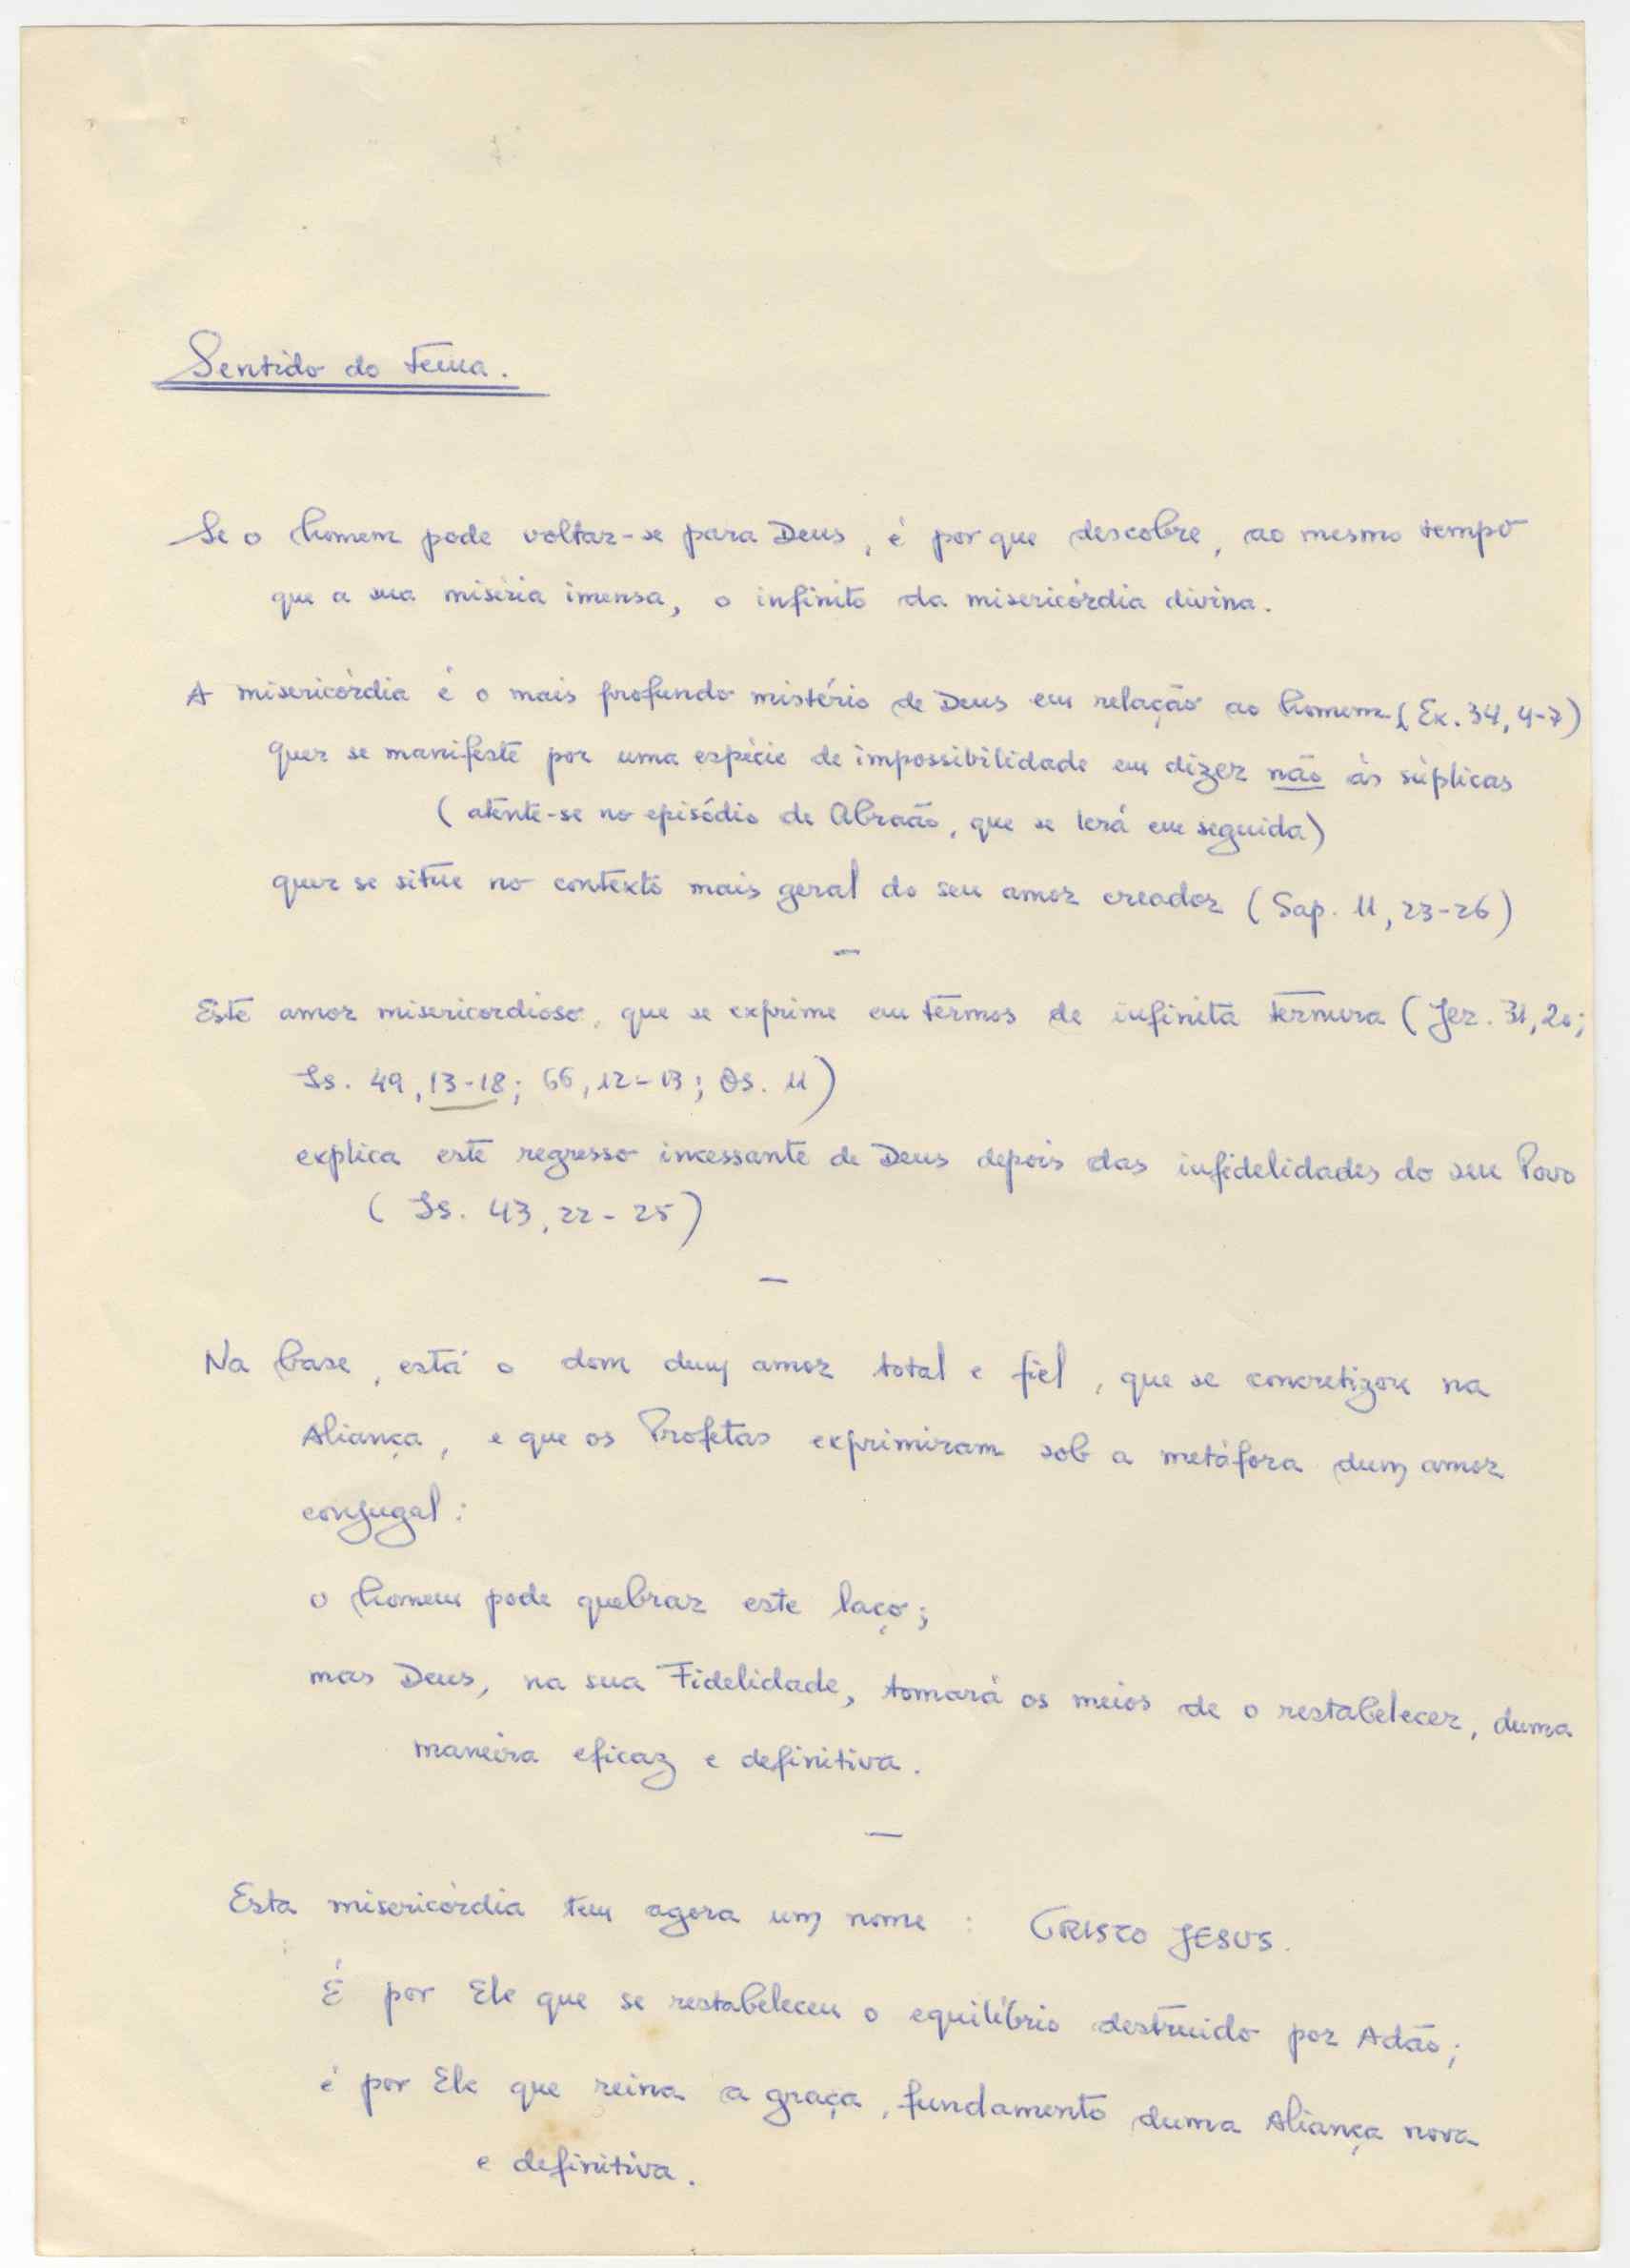 Sentido do tema.
Se o homem pode voltar-se para Deus, é porque descobre, ao mesmo tempo
que a sua miséria imensa, o infinito da misericórdia divina.
A misericórdia é o mais profundo mistério de Deus em relação ao homem (Ex. 34, 4-7)
quer se manifeste por uma espécie de impossibilidade em dizer não às súplicas
(atente-se no episódio de Abraão, que se lerá em seguida)
quer se situe no contexto mais geral do seu amor creador (Sap. 11, 23-26)
–
Este amor misericordioso, que se exprime em termos de infinita ternura (Jer. 31, 20;
Is. 49, 13-18; 66, 12-13; Os. 11)
explica este regresso incessante de Deus depois das infidelidades do seu Povo
(Is. 43, 22-25)
–
Na base, está o dom dum amor total e fiel, que se concretizou na
Aliança, e que os Profetas exprimiram sob a metáfora dum amor
conjugal:
o homem pode quebrar este laço;
mas Deus, na sua Fidelidade, tomará os meios de o restabelecer, duma
maneira eficaz e definitiva.
–
Esta misericórdia tem agora um nome : CRISTO JESUS.
É por Ele que se restabeleceu o equilíbrio destruido por Adão;
é por Ele que reina a graça, fundamento duma Aliança nova
e definitiva.